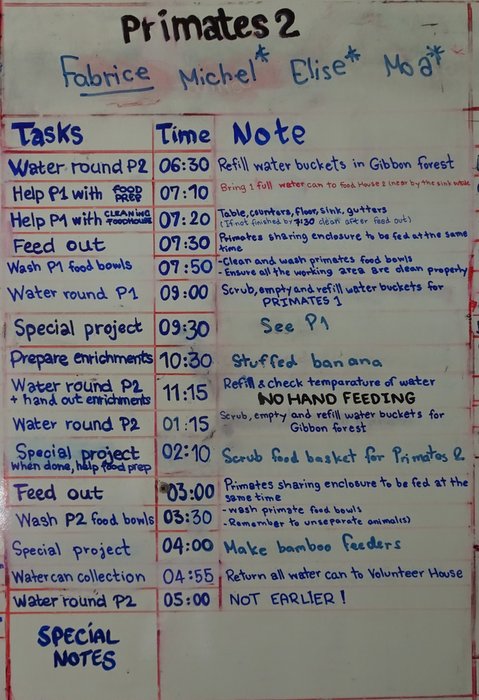 Primates 2
Fabrice Michel* Elise* Moa*
Tasks Time Note
Water round P2 06:30 Refill water buckets in Gibbon forest
Help P1 with FOOD PREP 07:10 Bring 1 full water can to food House 2 (near by the sink outside
Help P1 with CLEANING FOODHOUSE 07:20 Table, counters, floor, sink, gutters
(If not finished by 7:30 clean after feed out)
Feed out 07:30 Primates sharing enclosure to be fed at the same
time
Wash P1 food bowls 07:50 - Clean and wash primates food bowls
- Ensure all the working area are clean properly
Water round P1 09:00 Scrub, empty and refill water buckets for
PRIMATES 1
Special project 09:30 See P1
Prepare enrichments 10:30 Stuffed banana
Water round P2 11:15 Refill & check temparature of water
+ hand out enrichments NO HAND FEEDING
Water round P2 01:15 Scrub, empty and refill water buckets for
Gibbon forest
Special project 02:10 Scrub food basket for Primates 2
when done, help food prep
Feed out 03:00 Primates sharing enclosure to be fed at the
same time
Wash P2 food bowls 03:30 - wash primate food bowls
- Remember to unseparate animal(s)
Special project 04:00 Make bamboo feeders
Watercan collection 04:55 Return all water can to Volunteer House
Water round P2 05:00 NOT EARLIER !
SPECIAL
NOTES